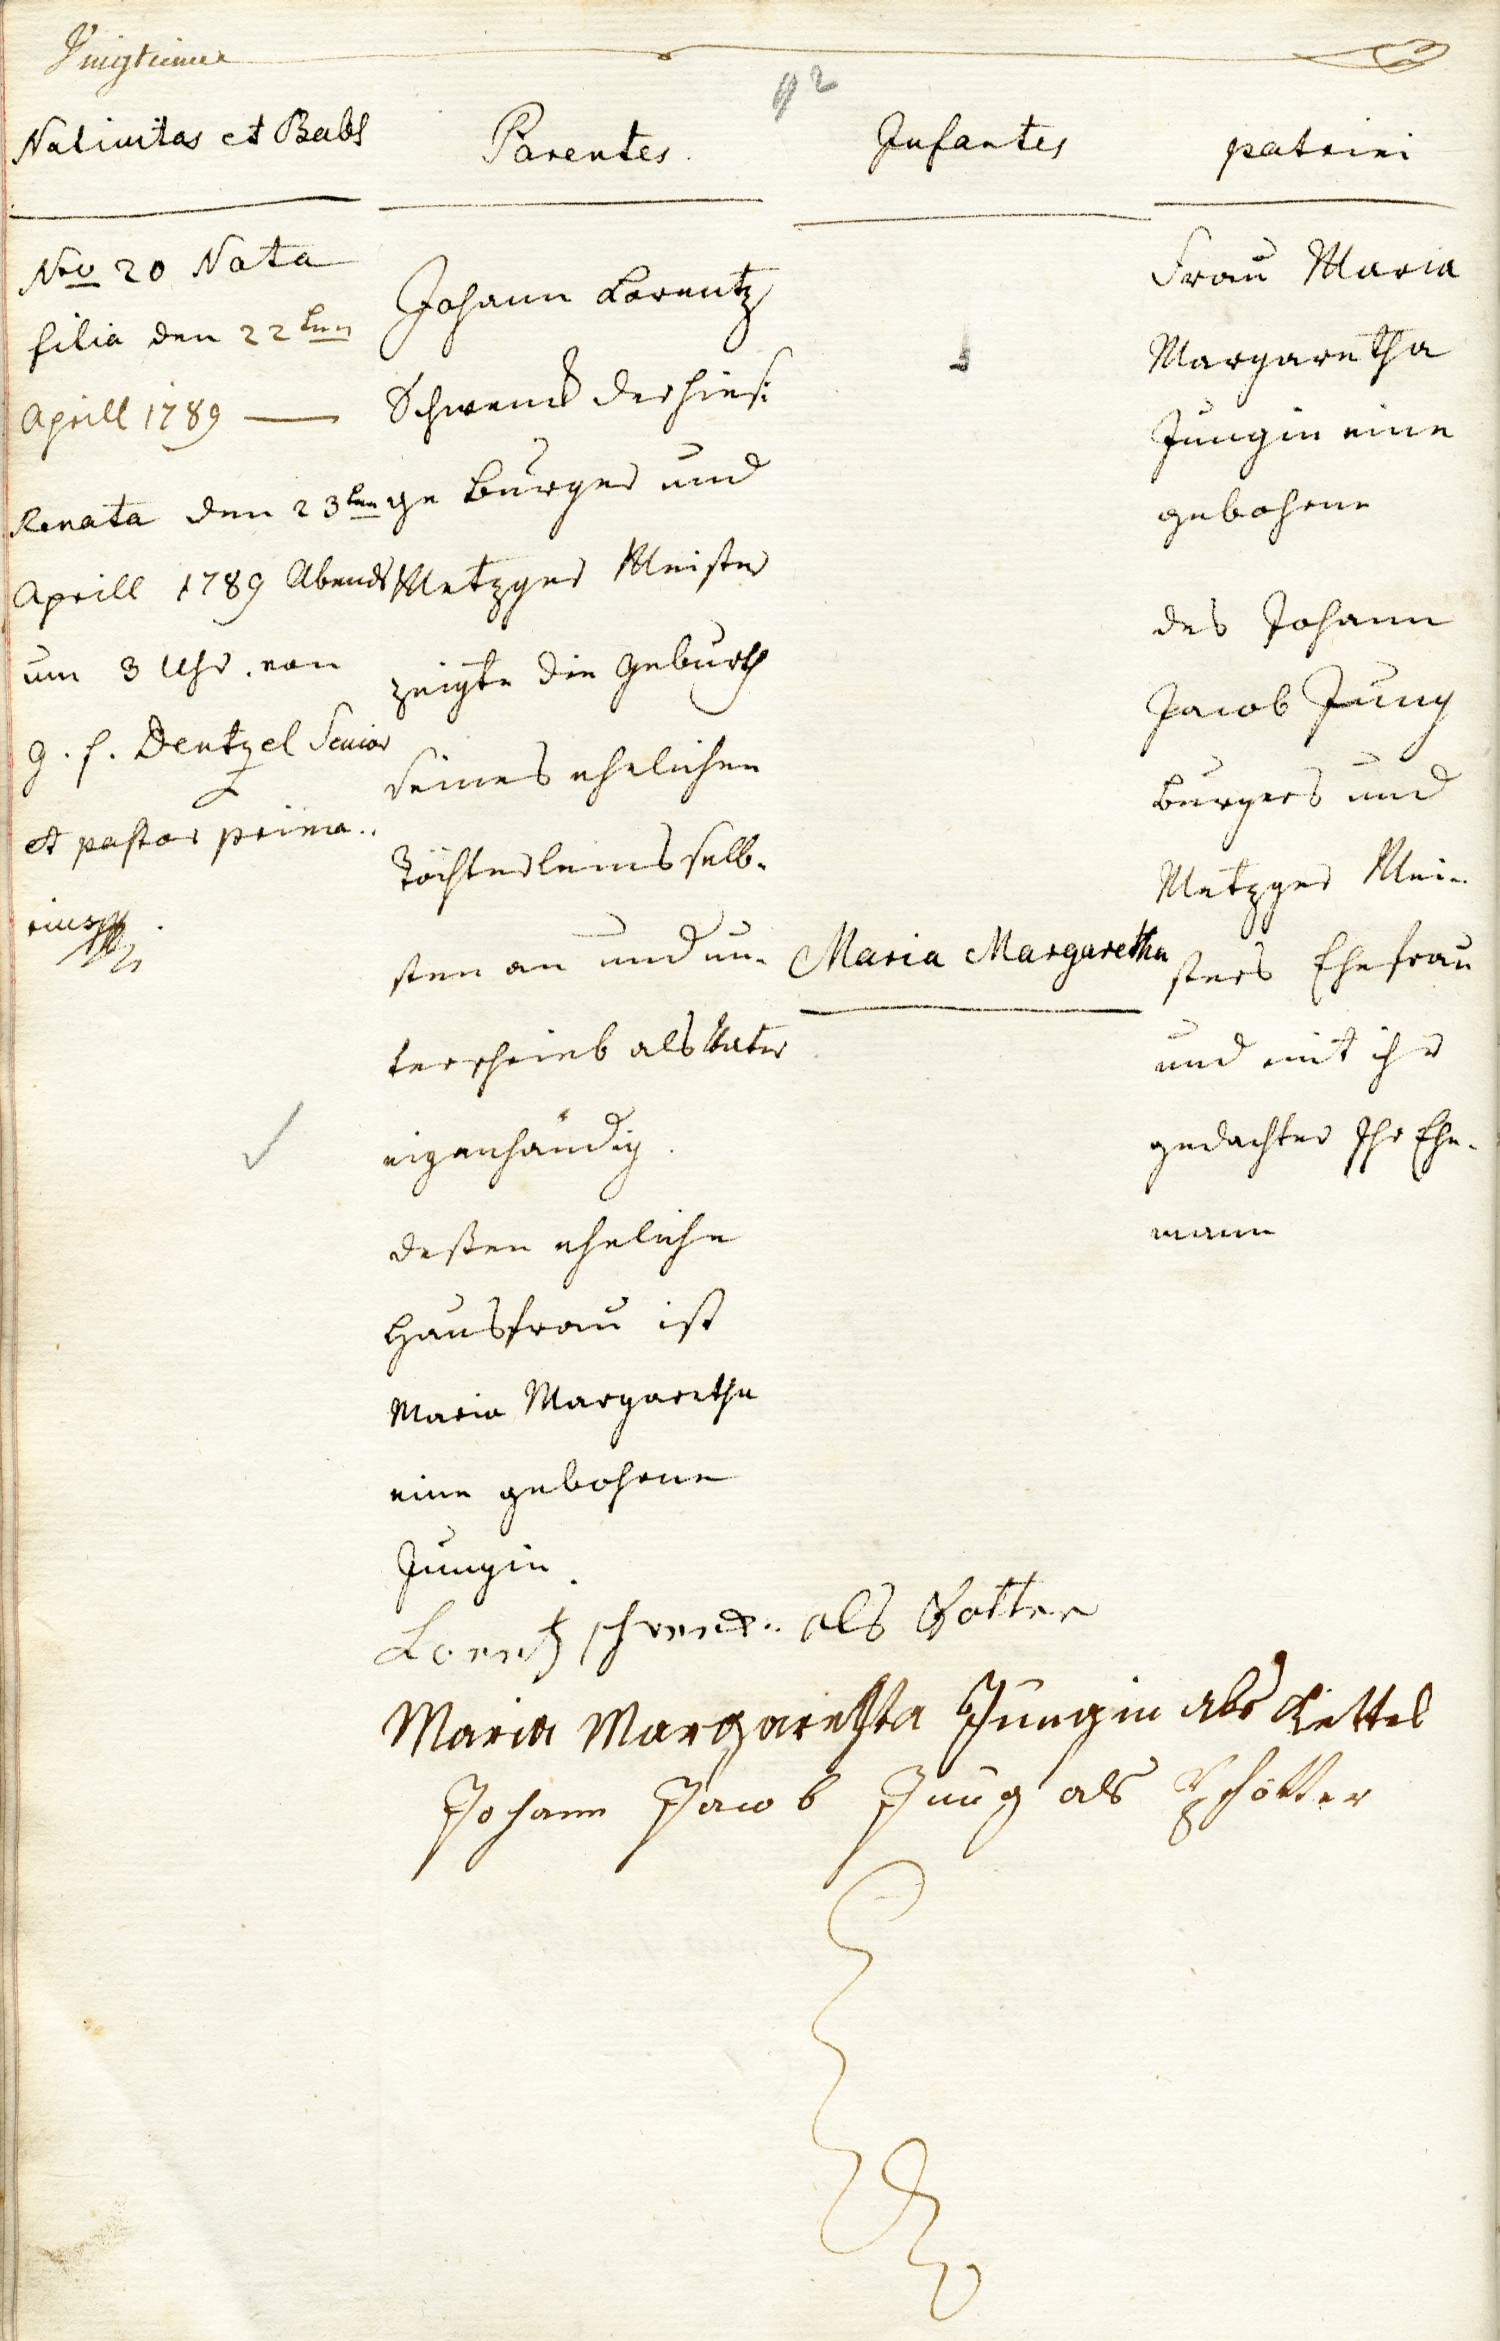 Vingtieme
92
Nativitas et Babt
Parentes.
Infantes
patrini
Nro 20 Nata
filia den 22ten
Aprill 1789 —
Renata den 23ten
Aprill 1789 Abends
um 3 Uhr. von
G. f. Dentzel Senior
et pastor prima..
rius
Johann Lorentz
Schwend der hiesi:
ge Burger und
Metzger Meister
zeigte die Geburth
seines ehelichen
Töchterleins selb-
sten an und un-
terschrieb als Vater
eigenhändig.
deßen eheliche
Hausfrau ist
Maria Margaretha
eine gebohrne
Jungin.
Maria Margaretha
Frau Maria
Margaretha
Jungin eine
gebohrne
des Johann
Jacob Jung
Burgers und
Metzger Mei-
sters Ehefrau
und mit ihr
gedachter Ihr Ehe-
mann
Lorentz schwend.. als Vatter
Maria Margaretha Jungin als Gettel
Johann Jacob Jung als Pfötter